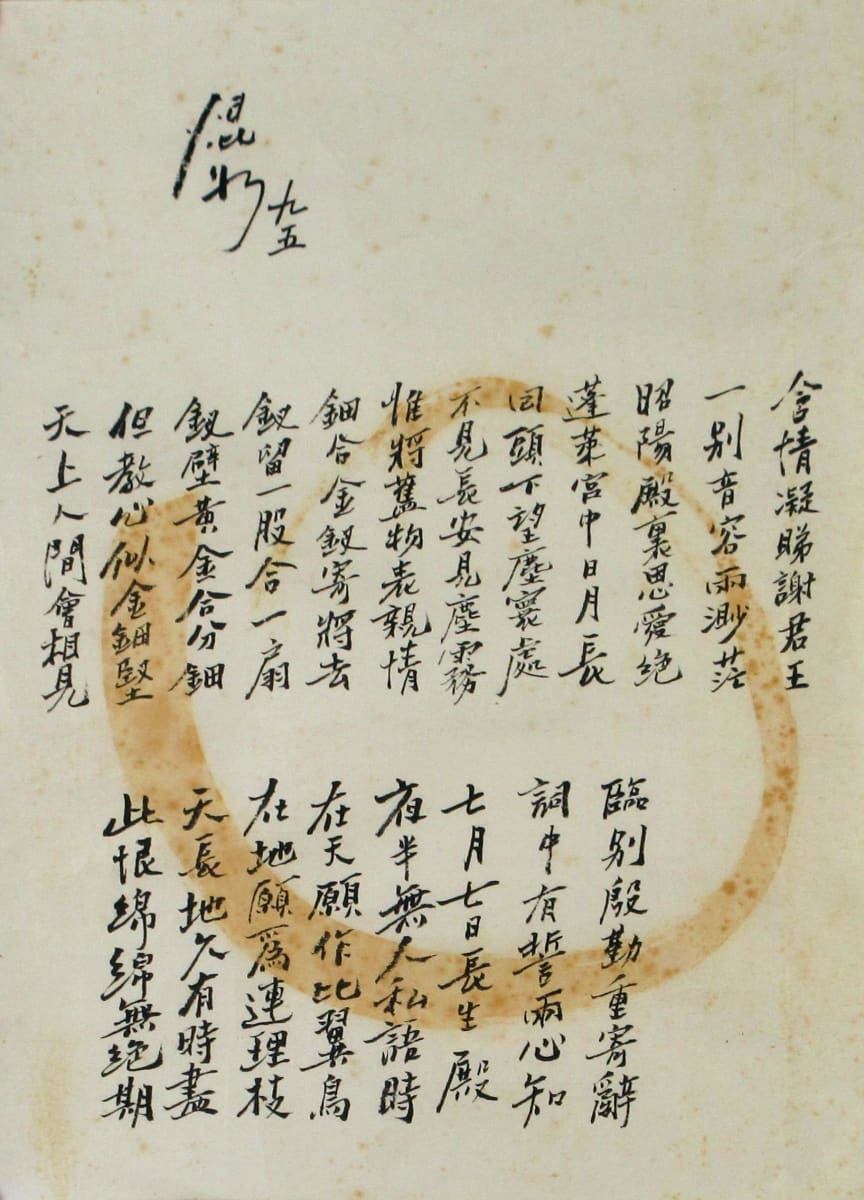 含情凝睇謝君王
一别音容兩渺茫
昭陽殿裏恩愛绝
蓬萊宫中日月長
回頭下望塵寰處
不見長安見塵霧
惟將舊物表親情
鈿合金釵寄將去
釵留一股合一扇
釵壁黄金合分鈿
但教心似金鈿堅
天上人間會相見
臨别殷勤重寄辭
詞中有誓兩心知
七月七日長生殿
夜半無人私語時
在天願作比翼鳥
在地願爲連理枝
天長地久有時盡
此恨綿綿無绝期
九五